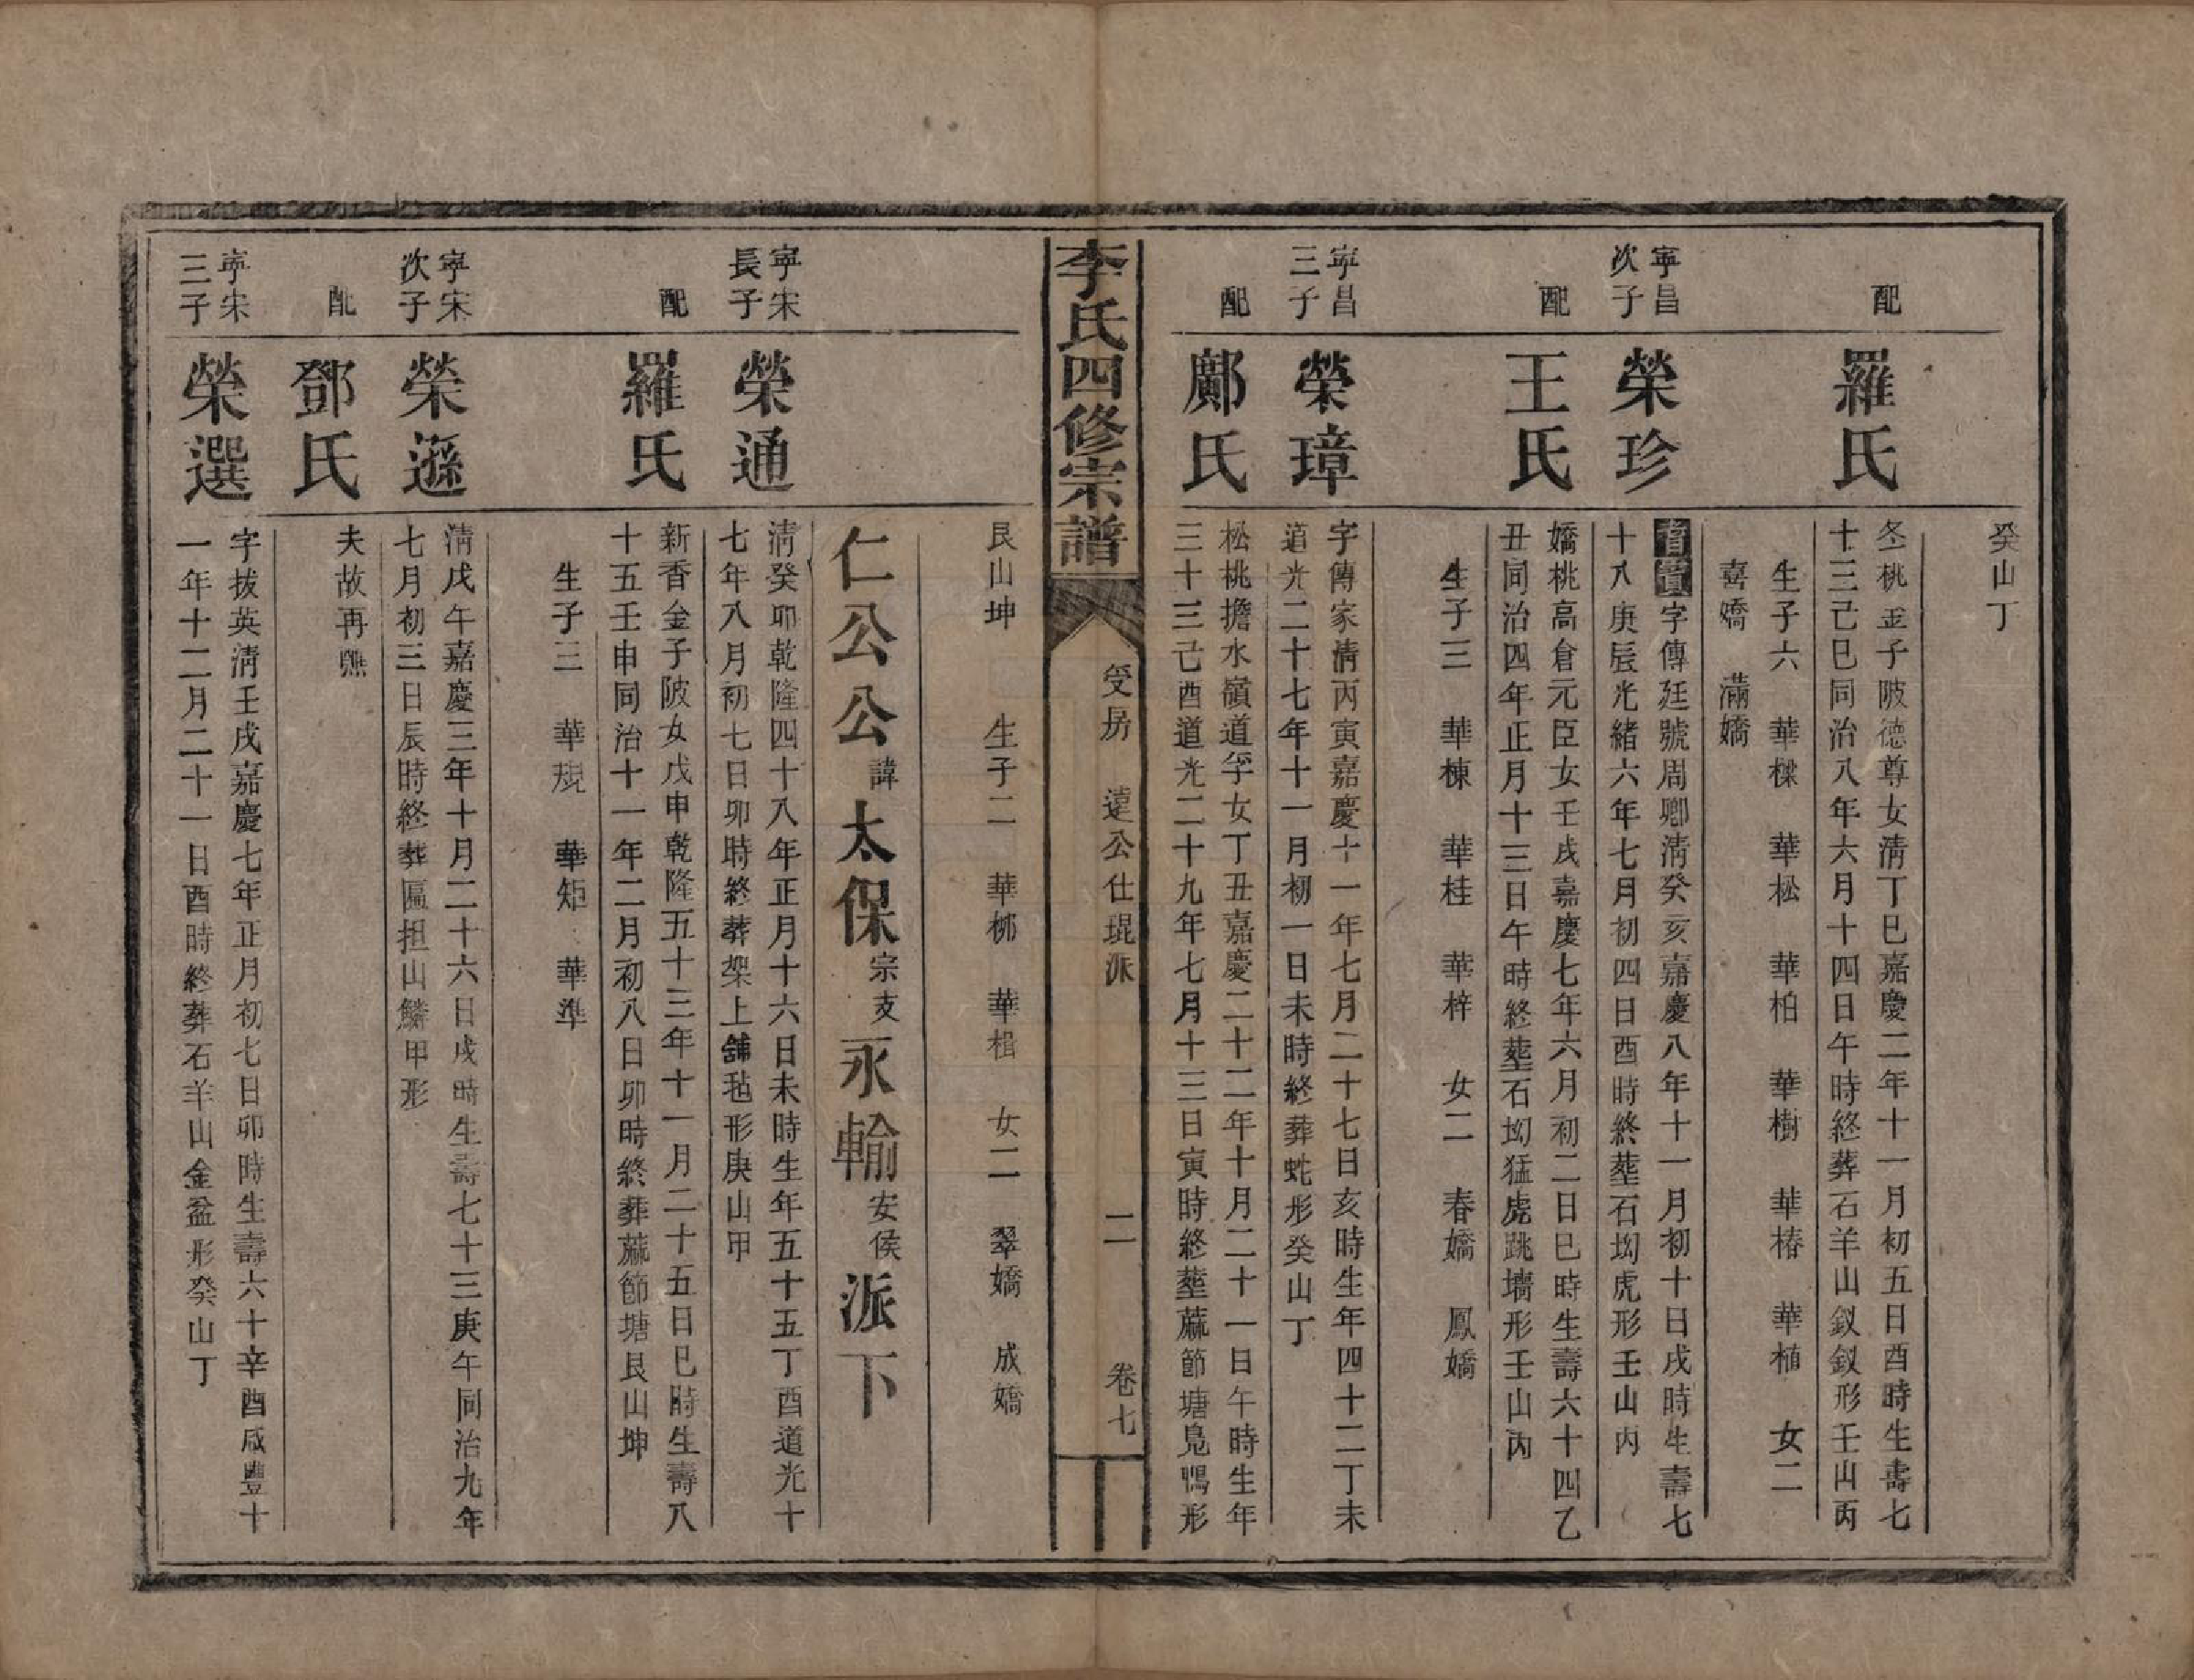 癸山丁
配
羅氏
冬桃金子陂德尊女淸丁巳嘉慶二年十一月初五日酉時生壽七
十三己巳同治八年六月十四日午時終葬石羊山釵釵形壬山丙
生子六　華樑　華松　華柏　華樹　華椿　華植　女二
喜嬌　滿嬌
寧昌
次子
榮珍
字傳廷號周卿淸癸亥嘉慶八年十一月初十日戌時生壽七
十八庚辰光緒六年七月初四日酉時終塟石坳虎形壬山丙
配
王氏
嬌桃高倉元臣女壬戌嘉慶七年六月初二日巳時生壽六十四乙
丑同治四年正月十三日午時終塟石坳猛虎跳墻形壬山丙
生子三　華棟　華桂　華梓　女二　春嬌　鳳嬌
寧昌
三子
榮璋
字傳家淸丙寅嘉慶十一年七月二十七日亥時生年四十二丁未
道光二十七年十一月初一日未時終葬虵形癸山丁
配
鄺氏
松桃擔水嶺道孚女丁丑嘉慶二十二年十月二十一日午時生年
三十三己酉道光二十九年七月十三日寅時終塟蔴節塘鳧鴨形
李氏四修宗譜
受房　遠公仕琨派　二　卷七
艮山坤　生子二　華梛　華楫　女二　翠嬌　成嬌
仁公公諱太保宗支永輸安侯派下
寧宋
長子
榮通
淸癸卯乾隆四十八年正月十六日未時生年五十五丁酉道光十
七年八月初七日卯時終葬架上舖毡形庚山甲
配
羅氏
新香金子陂女戊申乾隆五十三年十一月二十五日巳時生壽八
十五壬申同治十一年二月初八日卯時終葬蔴節塘艮山坤
生子三　華規　華矩　華準
寧宋
次子
榮遜
淸戊午嘉慶三年十月二十六日戌時生壽七十三庚午同治九年
七月初三日辰時終葬匾担山鱗甲形
配
鄧氏
夫故再醮
寧宋
三子
榮選
字拔英淸壬戌嘉慶七年正月初七日卯時生壽六十辛酉咸豐十
一年十二月二十一日酉時終葬石羊山金盆形癸山丁